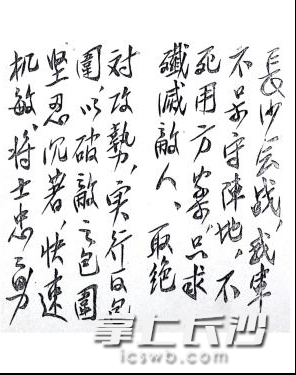 長沙会战，我軍
不呆守陣地，不
死用方案，只求
殲滅敵人、取绝
对攻勢，实行反包
圍，以破敵之包圍
坚忍沉著、快速
机敏、将士忠勇
掌上长沙
icswb.com